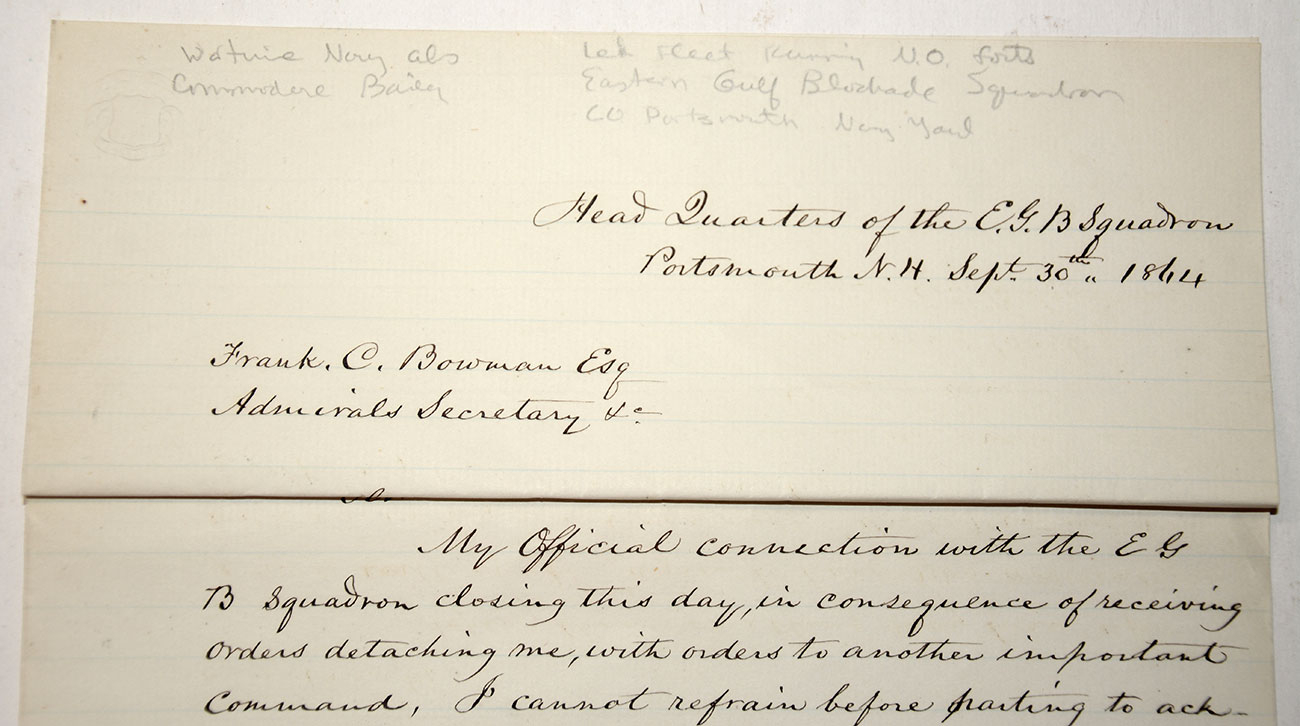 Wartime Navy als
Commodore Bailey
Led fleet Running N.O. forts
Eastern Gulf Blockade Squadron
CO Portsmouth Navy Yard
Head Quarters of the E.G.B Squadron
Portsmouth N.H. Sept. 30th " 1864
Frank. C. Bowman Esq
Admirals Secretary &c
My Official connection with the E G
B Squadron closing this day, in consequence of receiving
orders detaching me, with orders to another important
command, I cannot refrain before parting to ack-